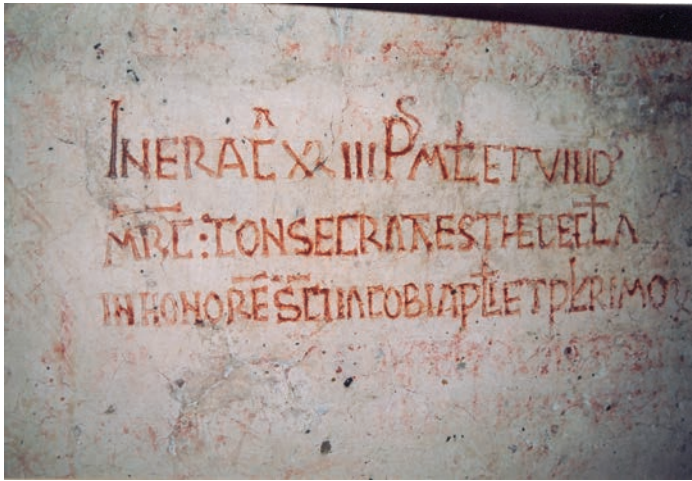 IN ERA Cᴬ XXIII Pˢ ML ET VIIII D'
MRC : CONSECRATA EST HEC ECCLA
IN HONORE SCI IACOBI APLI ET PLRIMOR